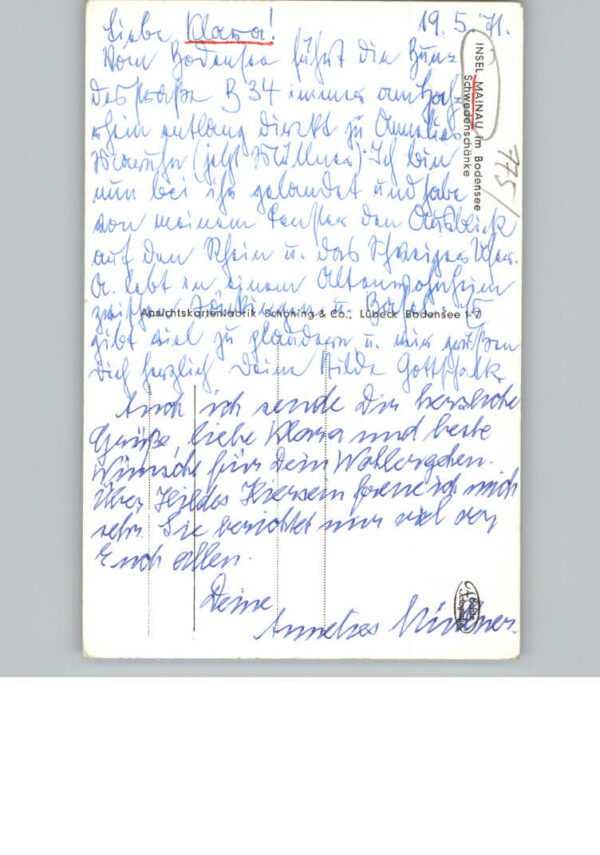 Liebe Klara! 19.5.71.
Vom Bodensee führt die Bun-
desstraße B 34 immer am Hoch-
rhein entlang direkt zu Annelies
(jetzt Müllner). Ich bin
nun bei ihr gelandet und habe
von meinem Fenster den Ausblick
auf den Rhein u. das Schweizer Ufer.
A. lebt in einem Altenwohnheim
zwischen Säckingen u. Basel. Es
gibt viel zu plaudern u. wir grüßen
Dich herzlich Deine Hilde Gottschalk
Auch ich sende Dir herzliche
Grüße, liebe Klara und beste
Wünsche für Dein Wohlergehen.
Über Hildes Hiersein freue ich mich
sehr. Sie berichtet mir viel von
Euch allen.
Deine
Annelies Müllner.
INSEL MAINAU im Bodensee
Schwedenschänke
775/
Ansichtskartenfabrik Schöning & Co., Lübeck Bodensee 1